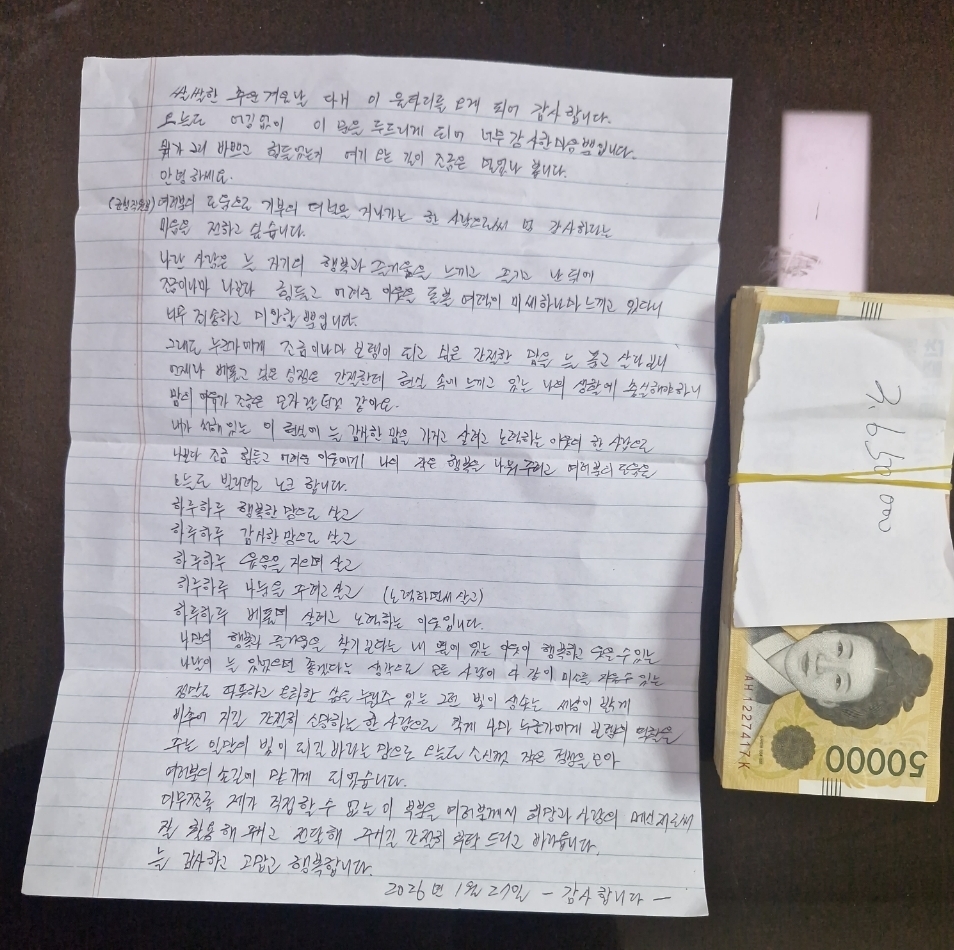 쌀쌀한 추운 겨울날 다시 이 울타리를 오게 되어 감사합니다.
오늘도 어김없이 이 문을 두드리게 되어 너무 감사한 마음뿐입니다.
뭐가 그리 바쁘고 힘들었는지 여기 오는 길이 조금은 멀었나 봅니다.
안녕하세요.
여러분의 도움으로 기부의 더 지나가는 한 사람으로써 감사하다는
마음을 전하고 싶습니다.
나란 사람은 늘 자기의 행복과 즐거움을 느끼고 즐기고 난 뒤에
조금이나마 나보다 힘들고 어려운 이웃을 돌볼 여력이 미세하나마 느끼고 있다니
너무 죄송하고 미안할 뿐입니다.
그래도 누군가에게 조금이나마 보탬이 되고 싶은 간절한 맘을 늘 품고 살다보니
언제나 베풀고 싶은 심정은 간절한데 현실 속에 느끼고 있는 나의 생활에 충실해야하니
맘의 여유가 조금은 모자란 것 같아요.
내가 처해 있는 이 현실에 늘 감사한 맘을 가지고 살려고 노력하는 이웃의 한 사람으로
나보다 조금 힘들고 어려운 이웃에게 나의 작은 행복을 나눠 주려고 여러분의 도움을
오늘도 빌리려고 노크 합니다.
하루하루 행복한 맘으로 살고
하루하루 감사한 맘으로 살고
하루하루 웃음을 지으며 살고
하루하루 나눔을 주려고 살고 (노력하면서 살고)
하루하루 베풀며 살려고 노력하는 이웃입니다.
나만의 행복과 즐거움을 찾기 보다는 내 옆에 있는 이웃이 행복하고 웃을 수 있는
나날이 늘 있었으면 좋겠다는 생각으로 모든 사람이 다 같이 미소를 지을 수 있는
정말로 따뜻하고 포근한 삶을 누릴 수 있는 그런 빛이 샘솟는 세상이 밝게
비추어 지길 간절히 소망하는 한 사람으로 작게 나마 누군가에게 보탬의 역할을
주는 일말의 빛이 되길 바라는 맘으로 오늘도 소신껏 작은 정성을 모아
여러분의 손길에 맡기게 되었습니다.
아무쪼록 제가 직접 할 수 없는 이 부분을 여러분께서 희망과 사랑의 메신저로써
잘 활용해 주시고 전달해 주시길 간절히 부탁 드리고 바라옵니다.
늘 감사하고 고맙고 행복합니다.
2026년 1월 27일 - 감사합니다 -
50000
AH1227417K